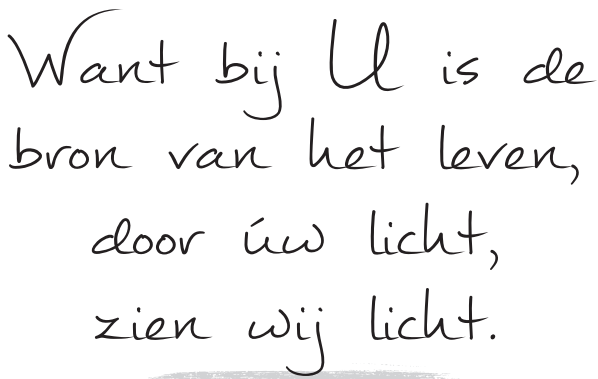 Want bij U is de
bron van het leven,
door úw licht,
zien wij licht.